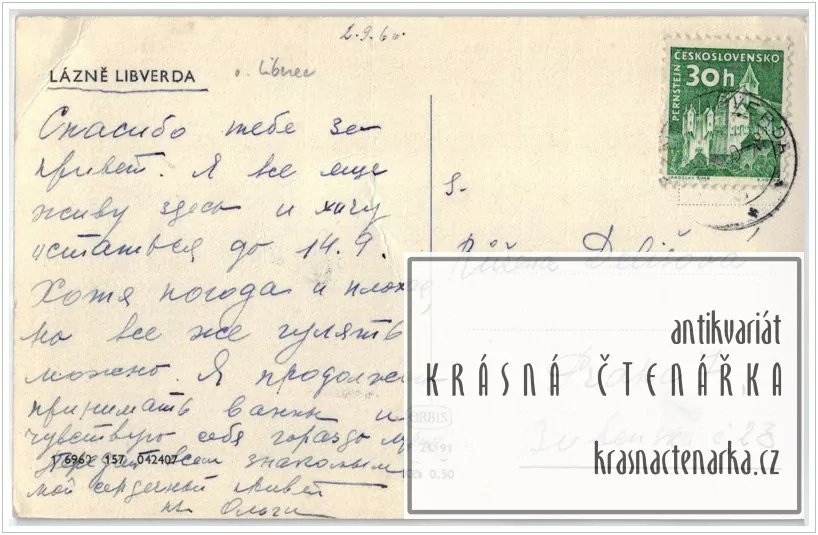 2.9.60.
LÁZNĚ LIBVERDA
Спасибо тебе за
привет. Я все еще
живу здесь и хочу
остаться до 14.9.
Хотя погода и плохая,
но все же гулять
можно. Я продолжаю
принимать ванны и
чувствую себя гораздо
всем знакомым
мой сердечный привет
Ольги
1 6962 157 042407
ČESKOSLOVENSKO
30h
PERNŠTEJN
S.
Růžena Delišová
Praha
č. 23
ORBIS
0,50
antikvariát
KRÁSNÁ ČTENÁŘKA
krasnactenarka.cz